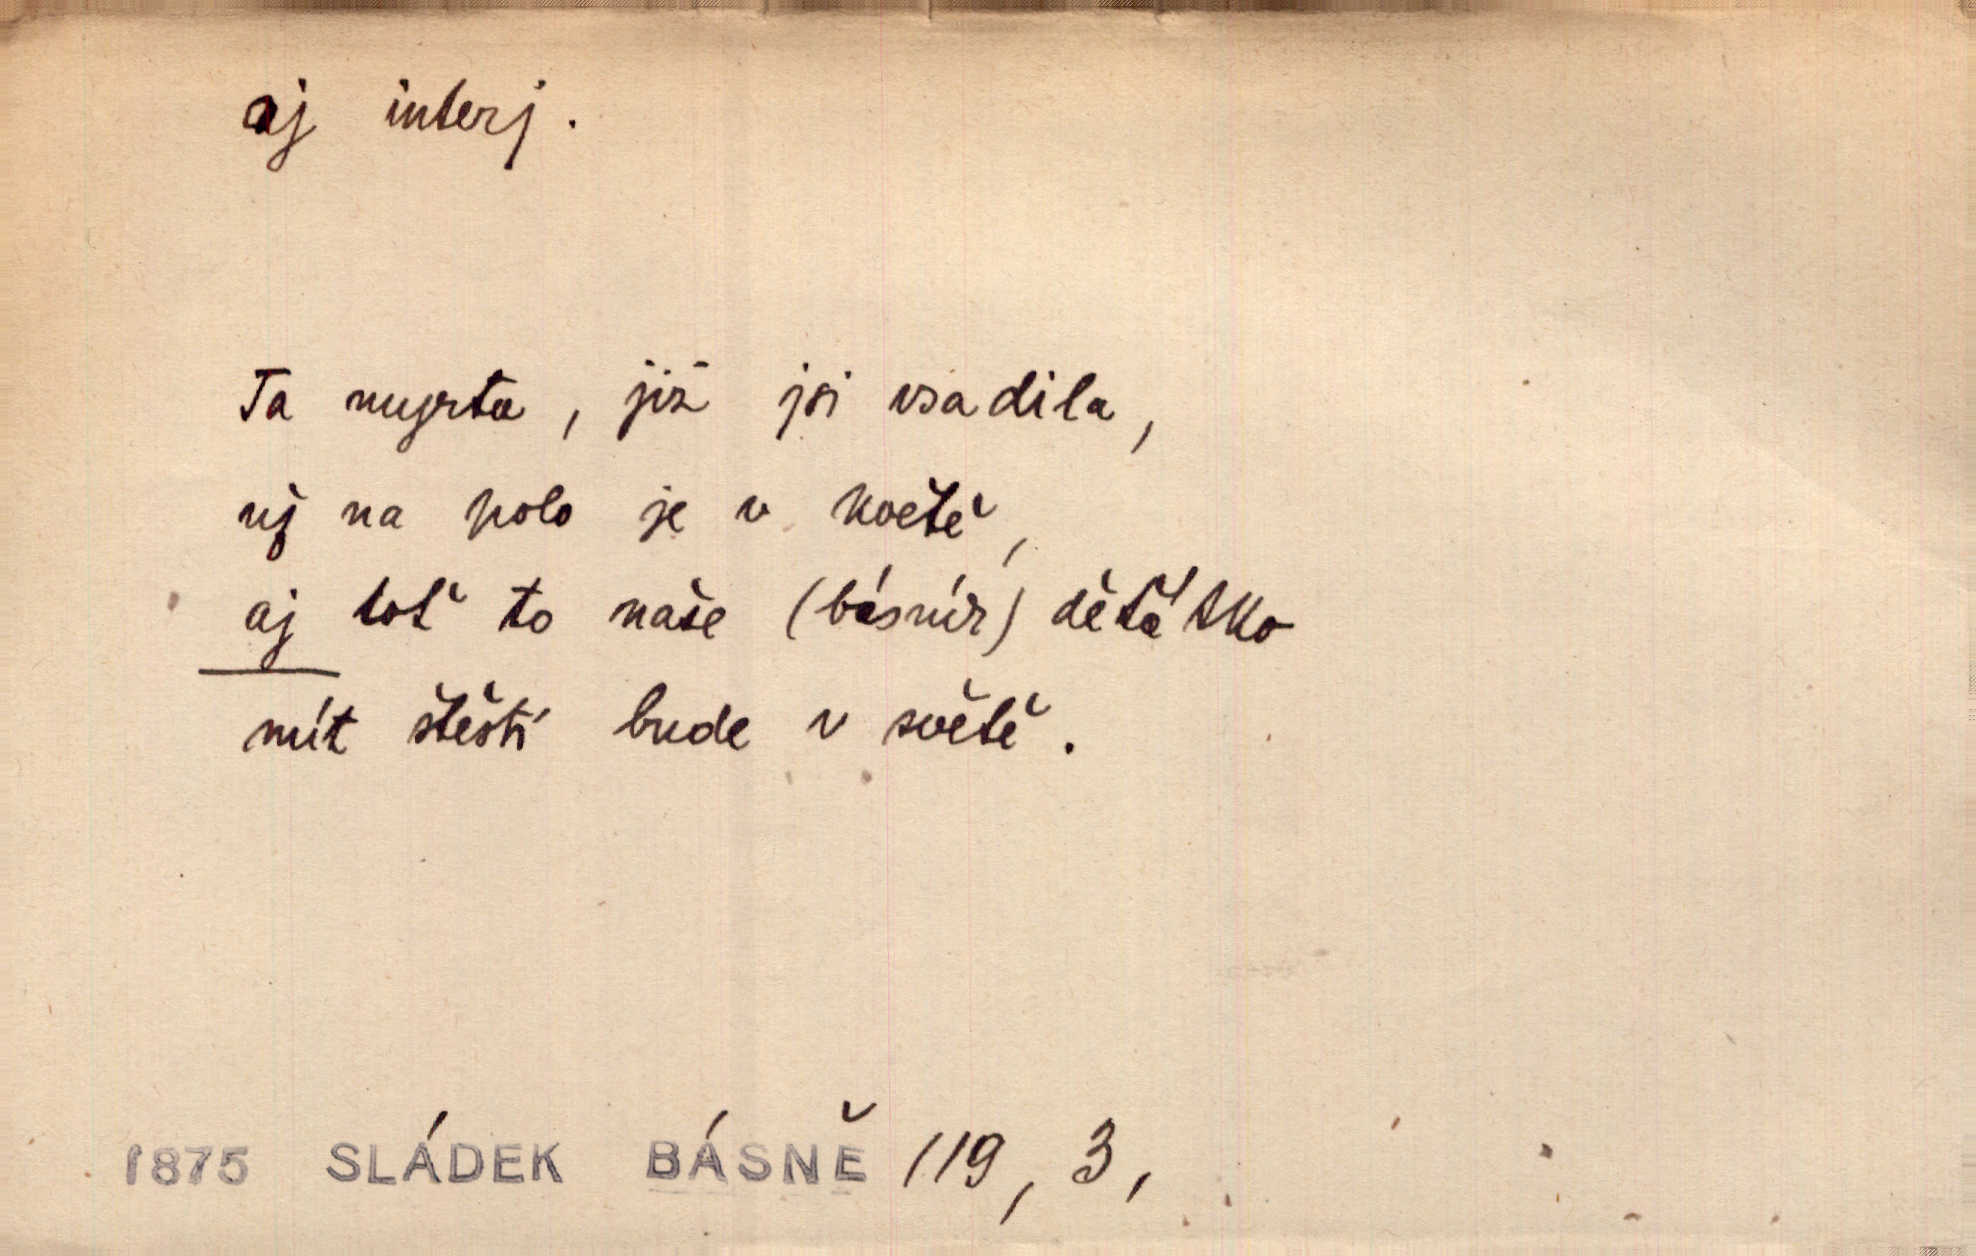 aj interj.
Ta myrta, již jsi vsadila,
už na polo je v květě,
aj toť to naše (básníř) děťátko
mít štěstí bude v světě.
1875 SLÁDEK BÁSNĚ 119, 3,